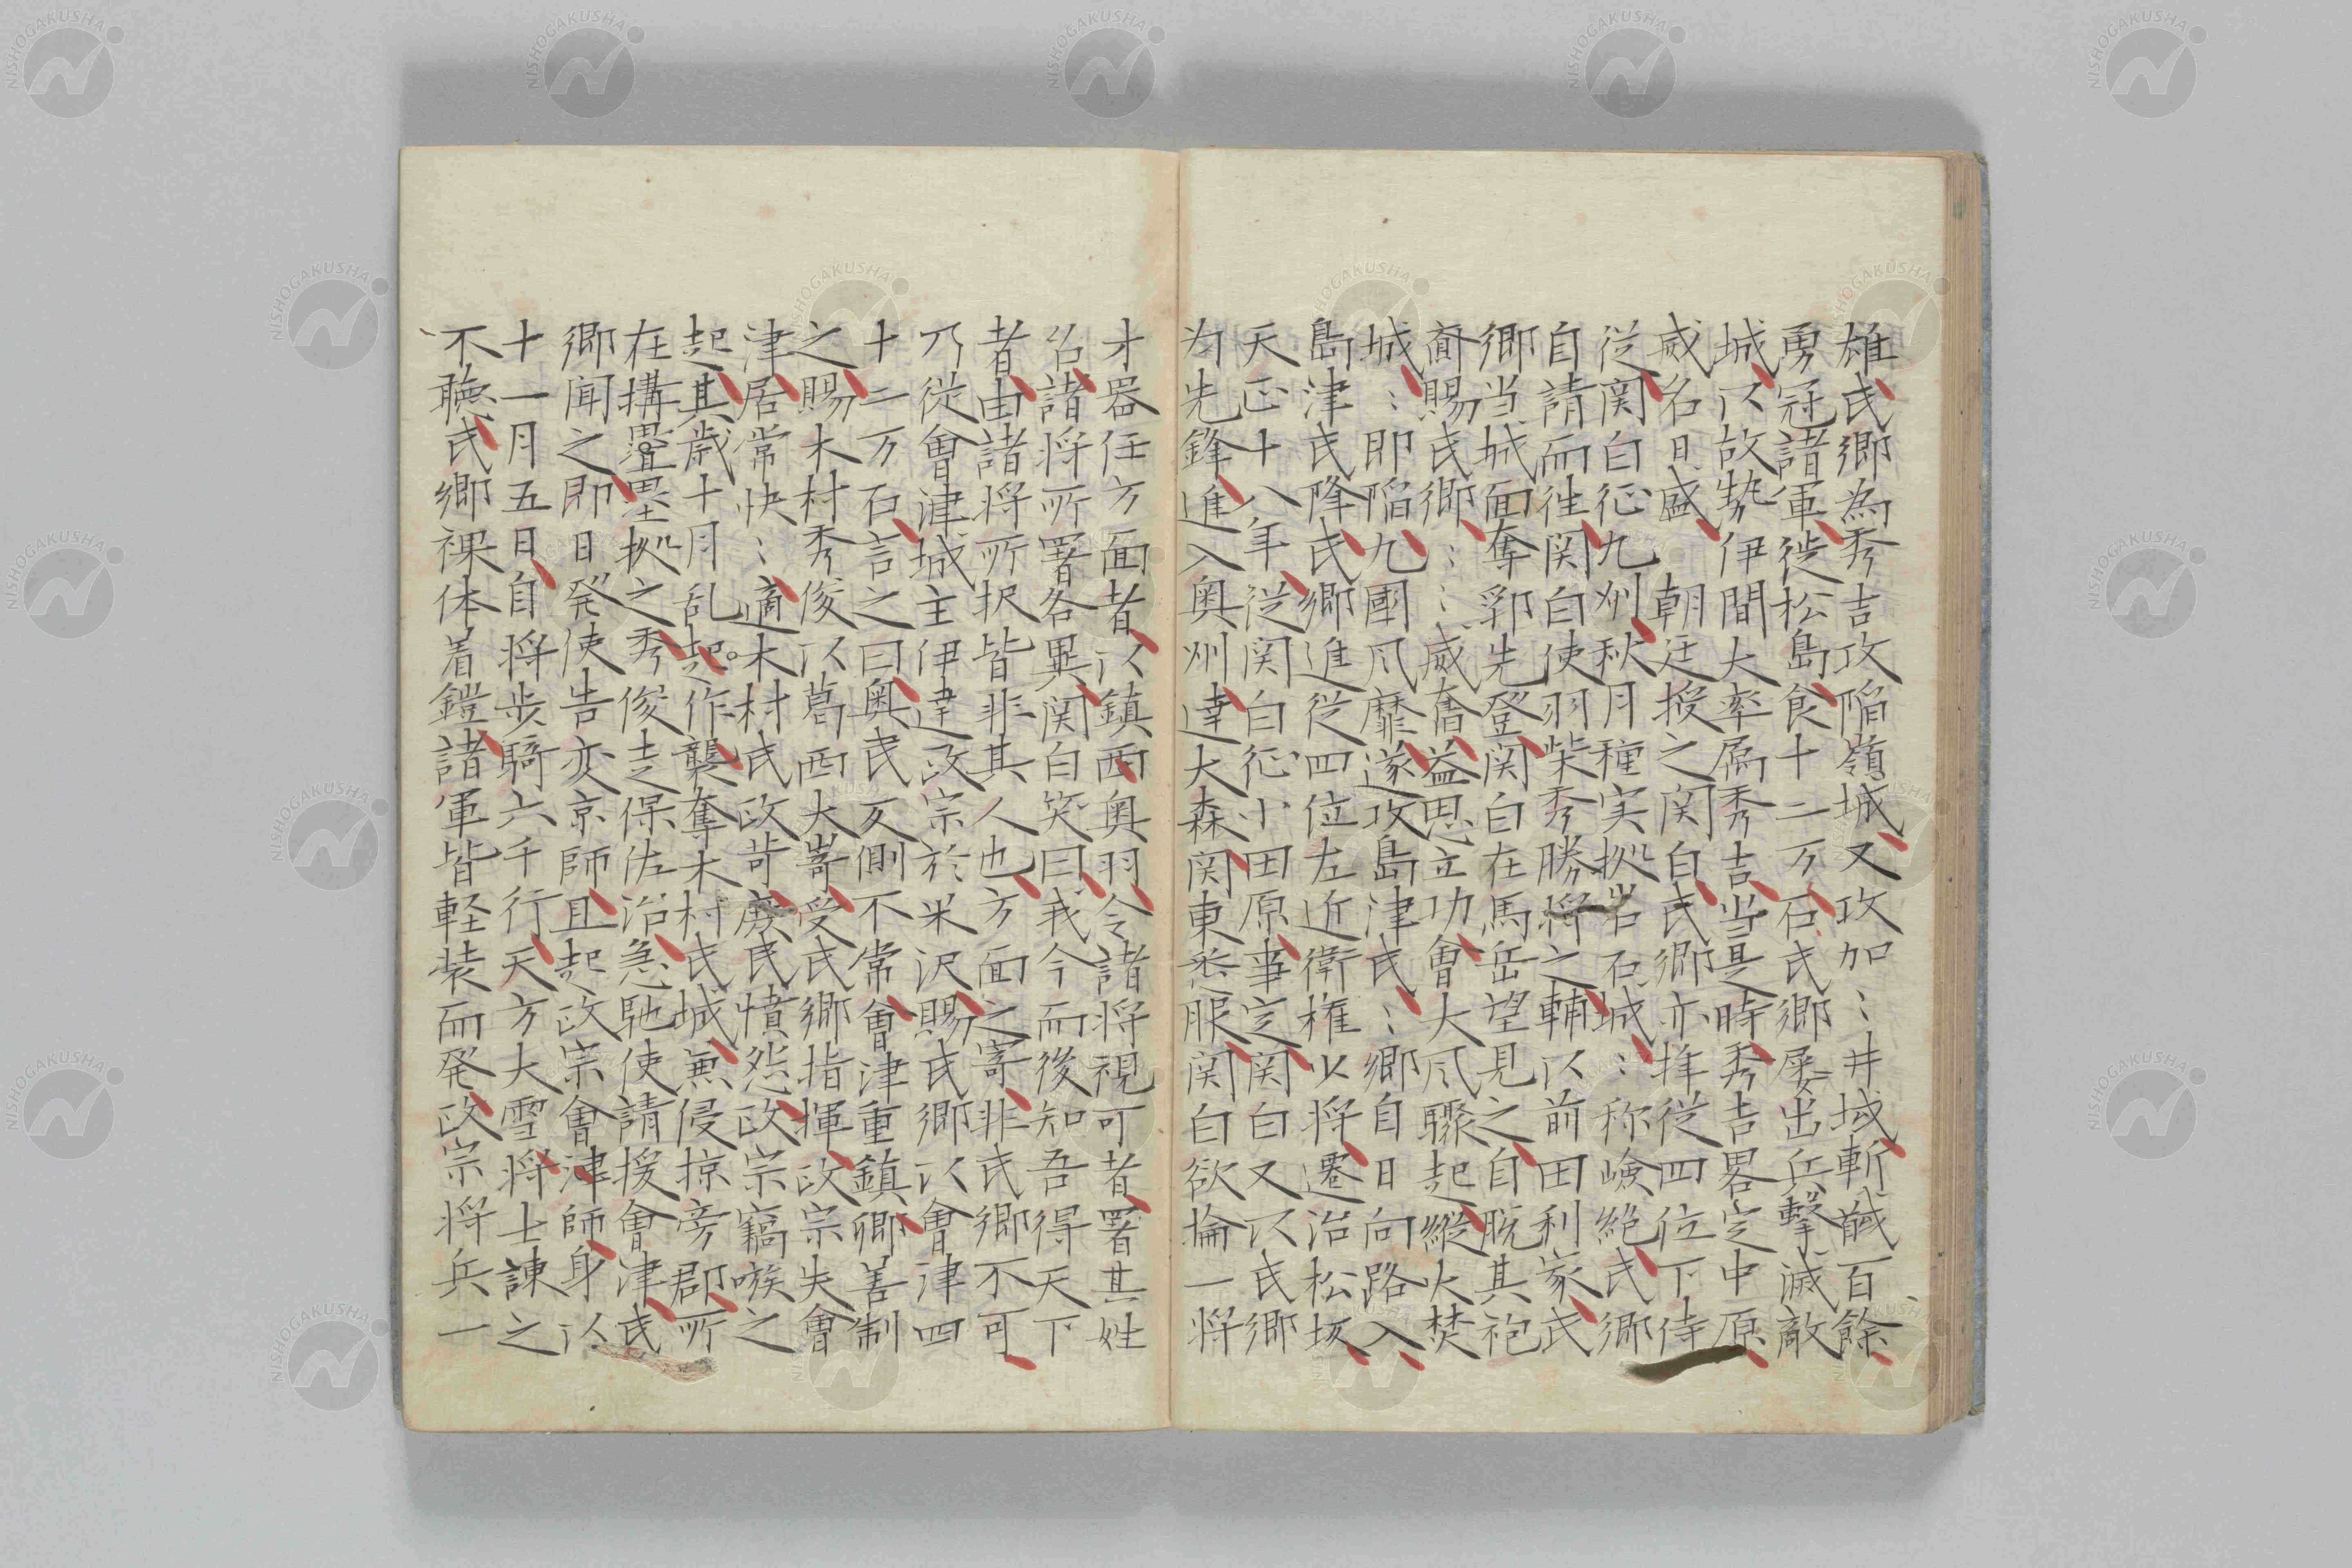 雄氏郷為秀吉攻陥嶺城又攻加〻井城斬馘百餘
勇冠諸軍徙松島食十二万石氏郷屡出兵撃滅敵
城以故勢伊間大率属秀吉当是時秀吉畧定中原
威名日盛　朝廷授之関白氏郷亦拝従四位下侍
従関白征九州秋月種実拠岩石城〻称嶮絶氏郷
自請而往関白使羽柴秀勝将之輔以前田利家氏
郷当城面奪郛先登関白在馬岳望見之自脱其袍
賜氏郷〻〻威奮益思立功會大風驟起縦火焚
城〻即陥九國風靡遂攻島津氏〻郷自日向路入
島津氏降氏郷進従四位左近衛権少将遷治松坂
天正十八年従関白征小田原事定関白又以氏郷
為先鋒進入奥州達大森関東悉服関白欲掄一将
才器任方面者以鎮西奥羽令諸将視可者署其姓
名諸将所署各異関白笑曰我今而後知吾得天下
者由諸将所択皆非其人也方面之寄非氏郷不可
乃従會津城主伊達政宗於米沢賜氏郷以會津四
十二万石言之曰奥民反側不常會津重鎮卿善制
之賜木村秀俊以葛西大嵜受氏郷指揮政宗失會
津居常怏〻適木村氏政苛廢民憤怨政宗竊嗾之
起其歳十月乱起作襲奪木村氏城無侵掠旁郡所
在搆壘拠之秀俊走保佐治急馳使請援會津氏
郷聞之即日発使告変京師且起政宗會津師身以
十一月五日自将歩騎六千行天方大雪将士諌之
不聴氏郷裸体着鎧諸軍皆軽装而発政宗将兵一